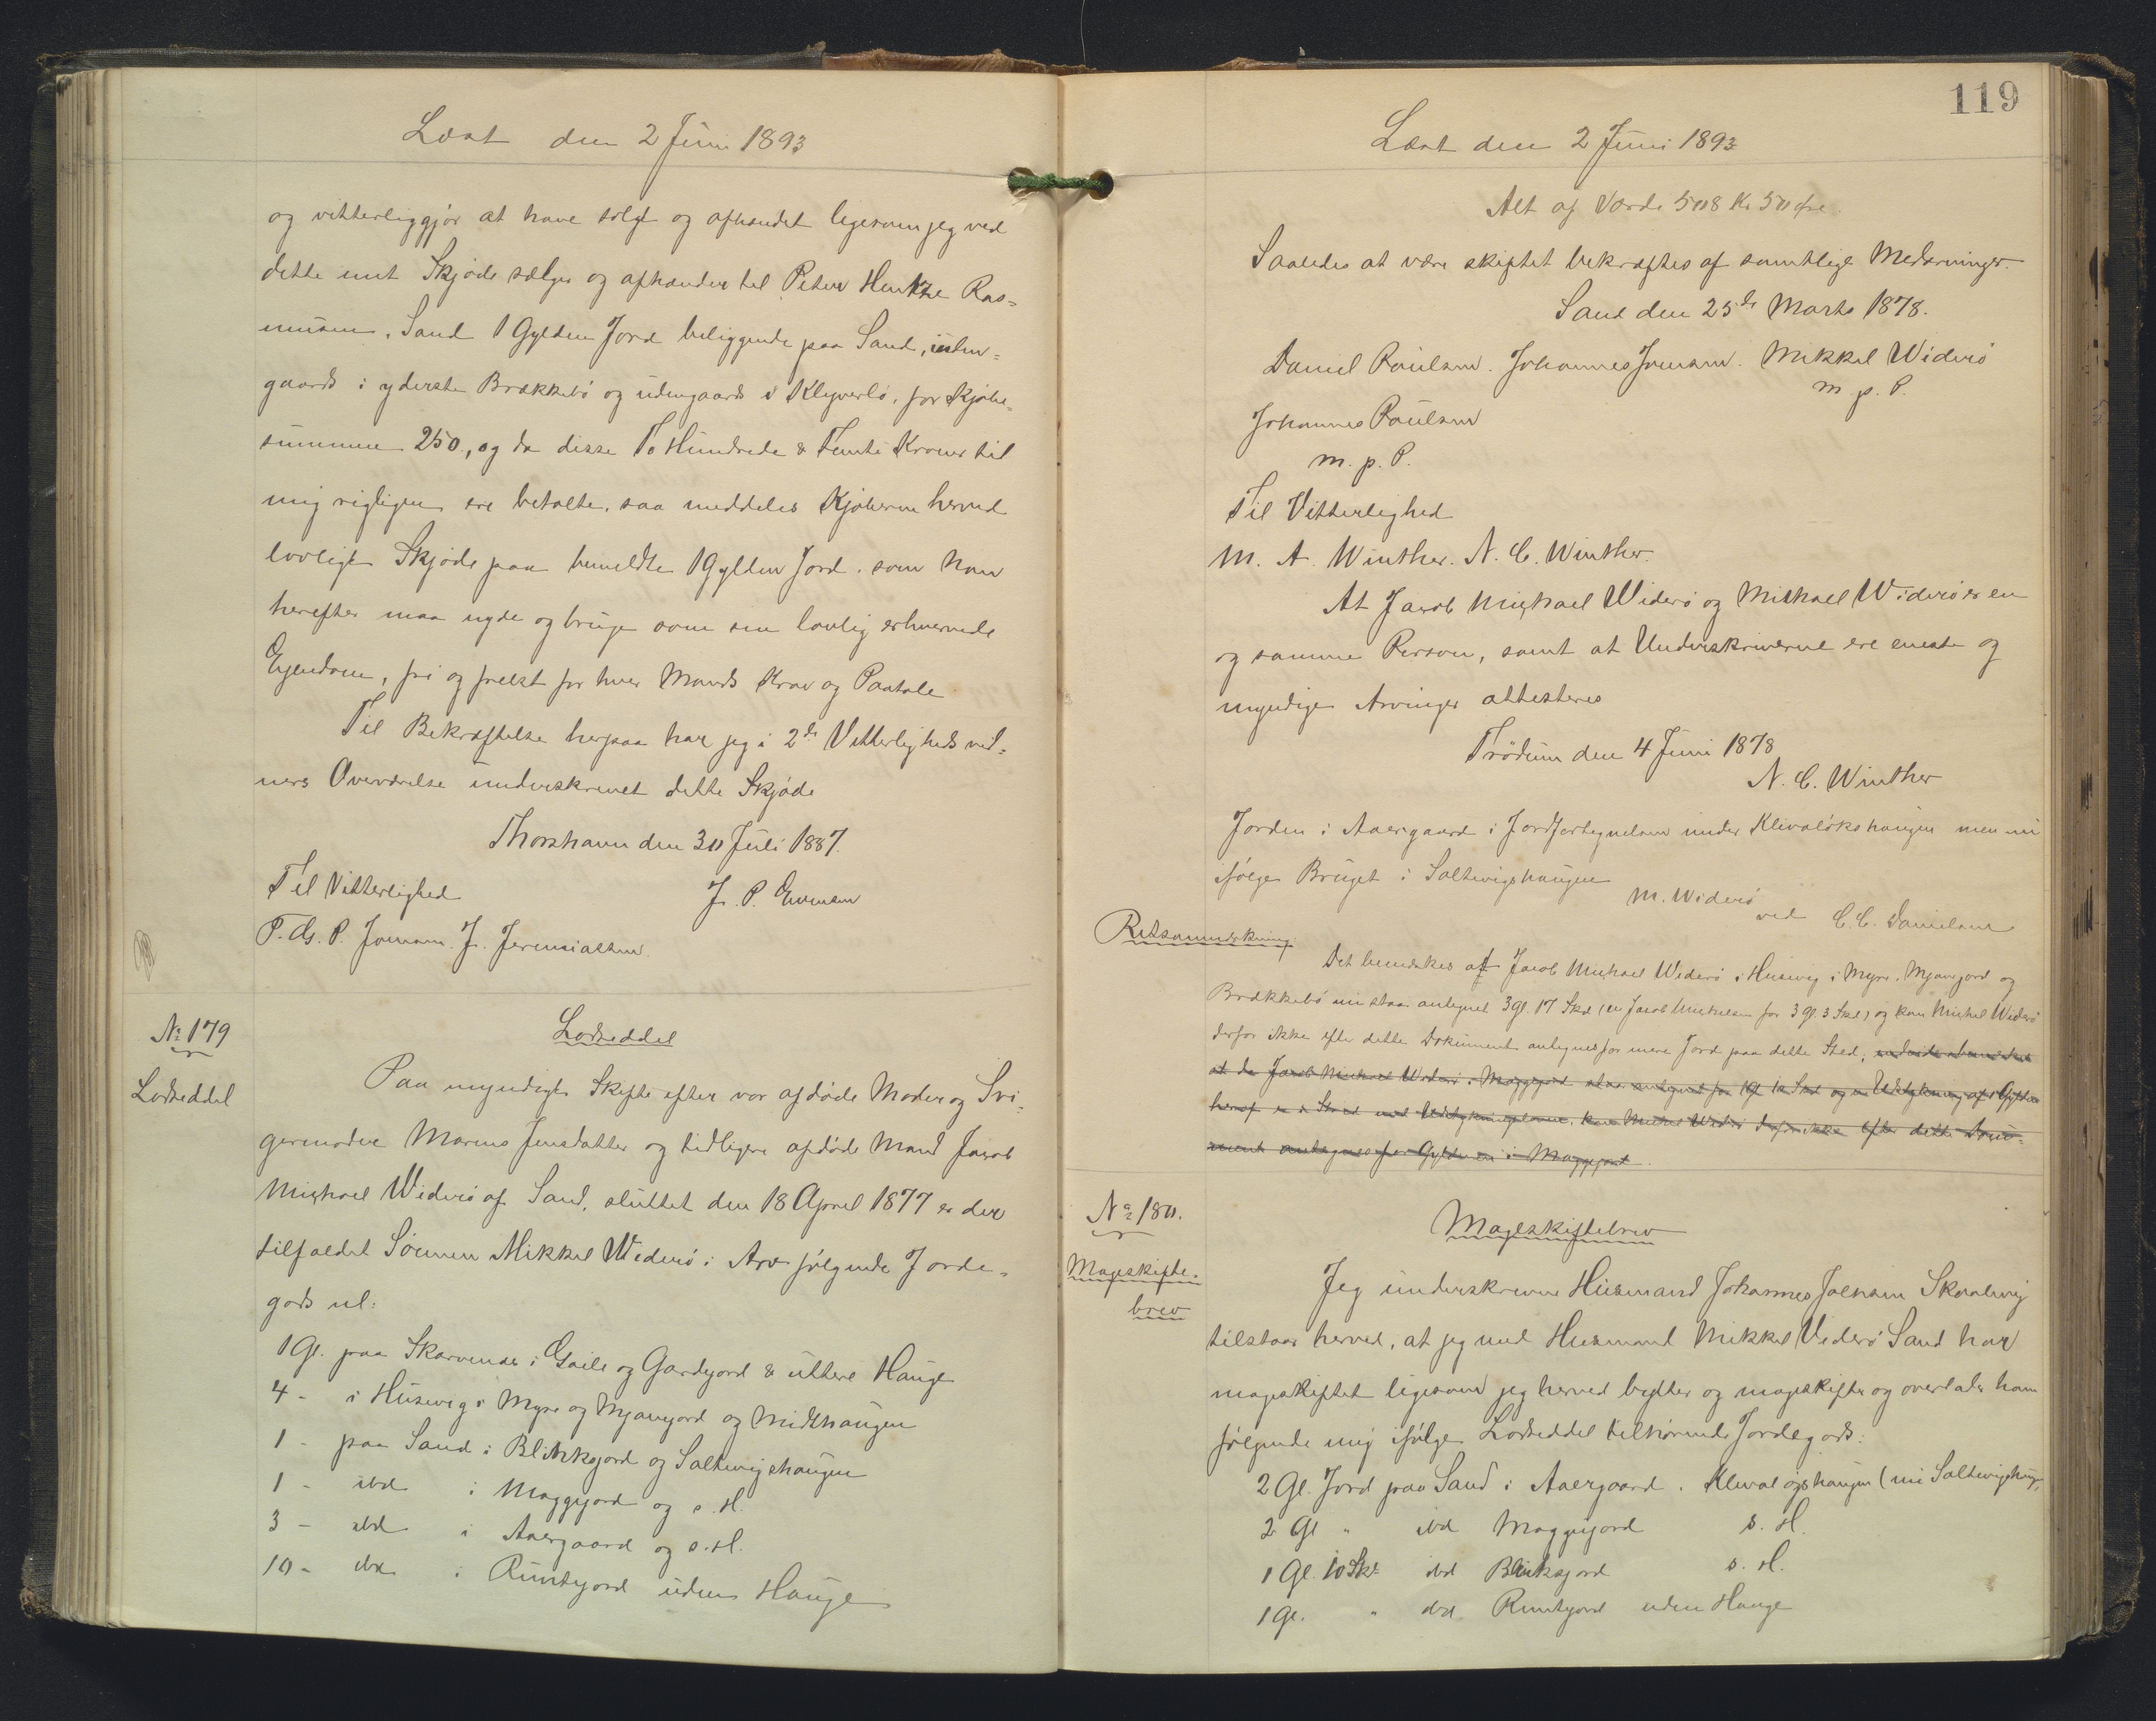 Læst den 2 Juni 1893
og vitterliggjør at have solgt og afhændet ligesom jeg ved
dette mit Skjøde sælger og afhænder til Peter Hentze Ras=
musen, Sand 1 Gylden Jord beliggende paa Sand, inden=
gaards i yderste Brækkebø og udengaards i Klyverlø, for Kjøbe=
summen 250, og da disse To Hundrede & Femti Kroner til
mig rigtigen ere betalte, saa meddeles Kjøberen herved
lovligt Skjøde paa bemeldte 1 Gylden Jord, som han
herefter maa nyde og bruge som sin lovlig erhvervede
Eiendom, fri og frelst for hver Mands Krav og Paatale
Til Bekræftelse herpaa har jeg i 2de Vitterligheds vid=
ners Overværelse underskrevet dette Skjøde
Thorshavn den 30 Juli 1887.
Til Vitterlighed
J. P. Evensen
P. Chr. P. Joensen. J. Jeremiassen.
No 179
Lodseddel
Lodseddel
Paa myndigt Skifte efter vor afdøde Moder og Svi=
germoder Marens Jensdatter og tidligere afdøde Mand Jacob
Michael Widerø af Sand, sluttet den 18 April 1877 er der
tilfaldet Sønnen Mikkel Widerø i Arv følgende Jorde=
gods nl:
1 Gl. paa Skarvenes i Gaile og Gardsjord & uttere Hauge
4 - i Husevig i Myre og Mjavejord og Midthaugen
1 - paa Sand i Blinksjord og Saltvigshaugen
1 - ibd i Maggejord og s. H.
3 - ibd i Aaergaard og s. H.
10 - ibd i Runtejord uden Hauge
119
Læst den 2 Juni 1893
Alt af Værdi 508 Kr 50 Øre.
Saaledes at være skiftet bekræftes af samtlige Medarvinger.
Sand den 25de Marts 1878.
Daniel Poulsen. Johannes Joensen. Mikkel Widerø
m. p. P.
Johannes Poulsen
m. p. P.
Til Vitterlighed
M. A. Winther. N. C. Winther.
At Jacob Michael Widerø og Michael Widerø er en
og samme Person, samt at Underskriverne ere eneste og
myndige Arvinger attesteres
Trødum den 4 Juni 1878
N. C. Winther
Jorden i Aaergaard i Jordfortegnelsen under Klivaløkshaugen men nu
ifølge Bruget i Saltvigshaugen
M. Widerø
ved C. C. Danielsen
Retsanmærkning.
Det bemærkes at Jacob Michael Widerø i Husevig i Myre, Mjavejord og
Brækkebø nu staar antegnet 3 Gl. 17 Skd (en Jacob Mickelsen for 3 Gl. 3 Skd) og kan Michel Widerø
derfor ikke efter dette Dokument antegnes for mere Jord paa dette Sted,
at da Jacob Michael Widerø i Maggejord staar antegnet for 1 Gl 10 Skd og en Udstykning af 1 Gylden
heraf er i Strid med Udstykningslovene, kan Michel Widerø derfor ikke efter dette Docu=
ment antegnes for Gylden i Maggejord.
No 180.
Mageskifte-
brev
Mageskiftebrev
Jeg underskrevne Husmand Johannes Joensen Skaalevig
tilstaar herved, at jeg med Husmand Mikkel Viderø Sand har
mageskiftet ligesom jeg herved bytter og mageskifter og overlader ham
følgende mig ifølge Lodseddel tilhørende Jordegods:
2 Gl. Jord paa Sand i Aaergaard. Klivaløgshaugen (nu Saltvigshaug.
2 Gl " ibd Maggejord s. H.
1 Gl. 10 Sk. ibd Blinksjord s. H.
1 Gl. " ibd Runtejord uden Hauge